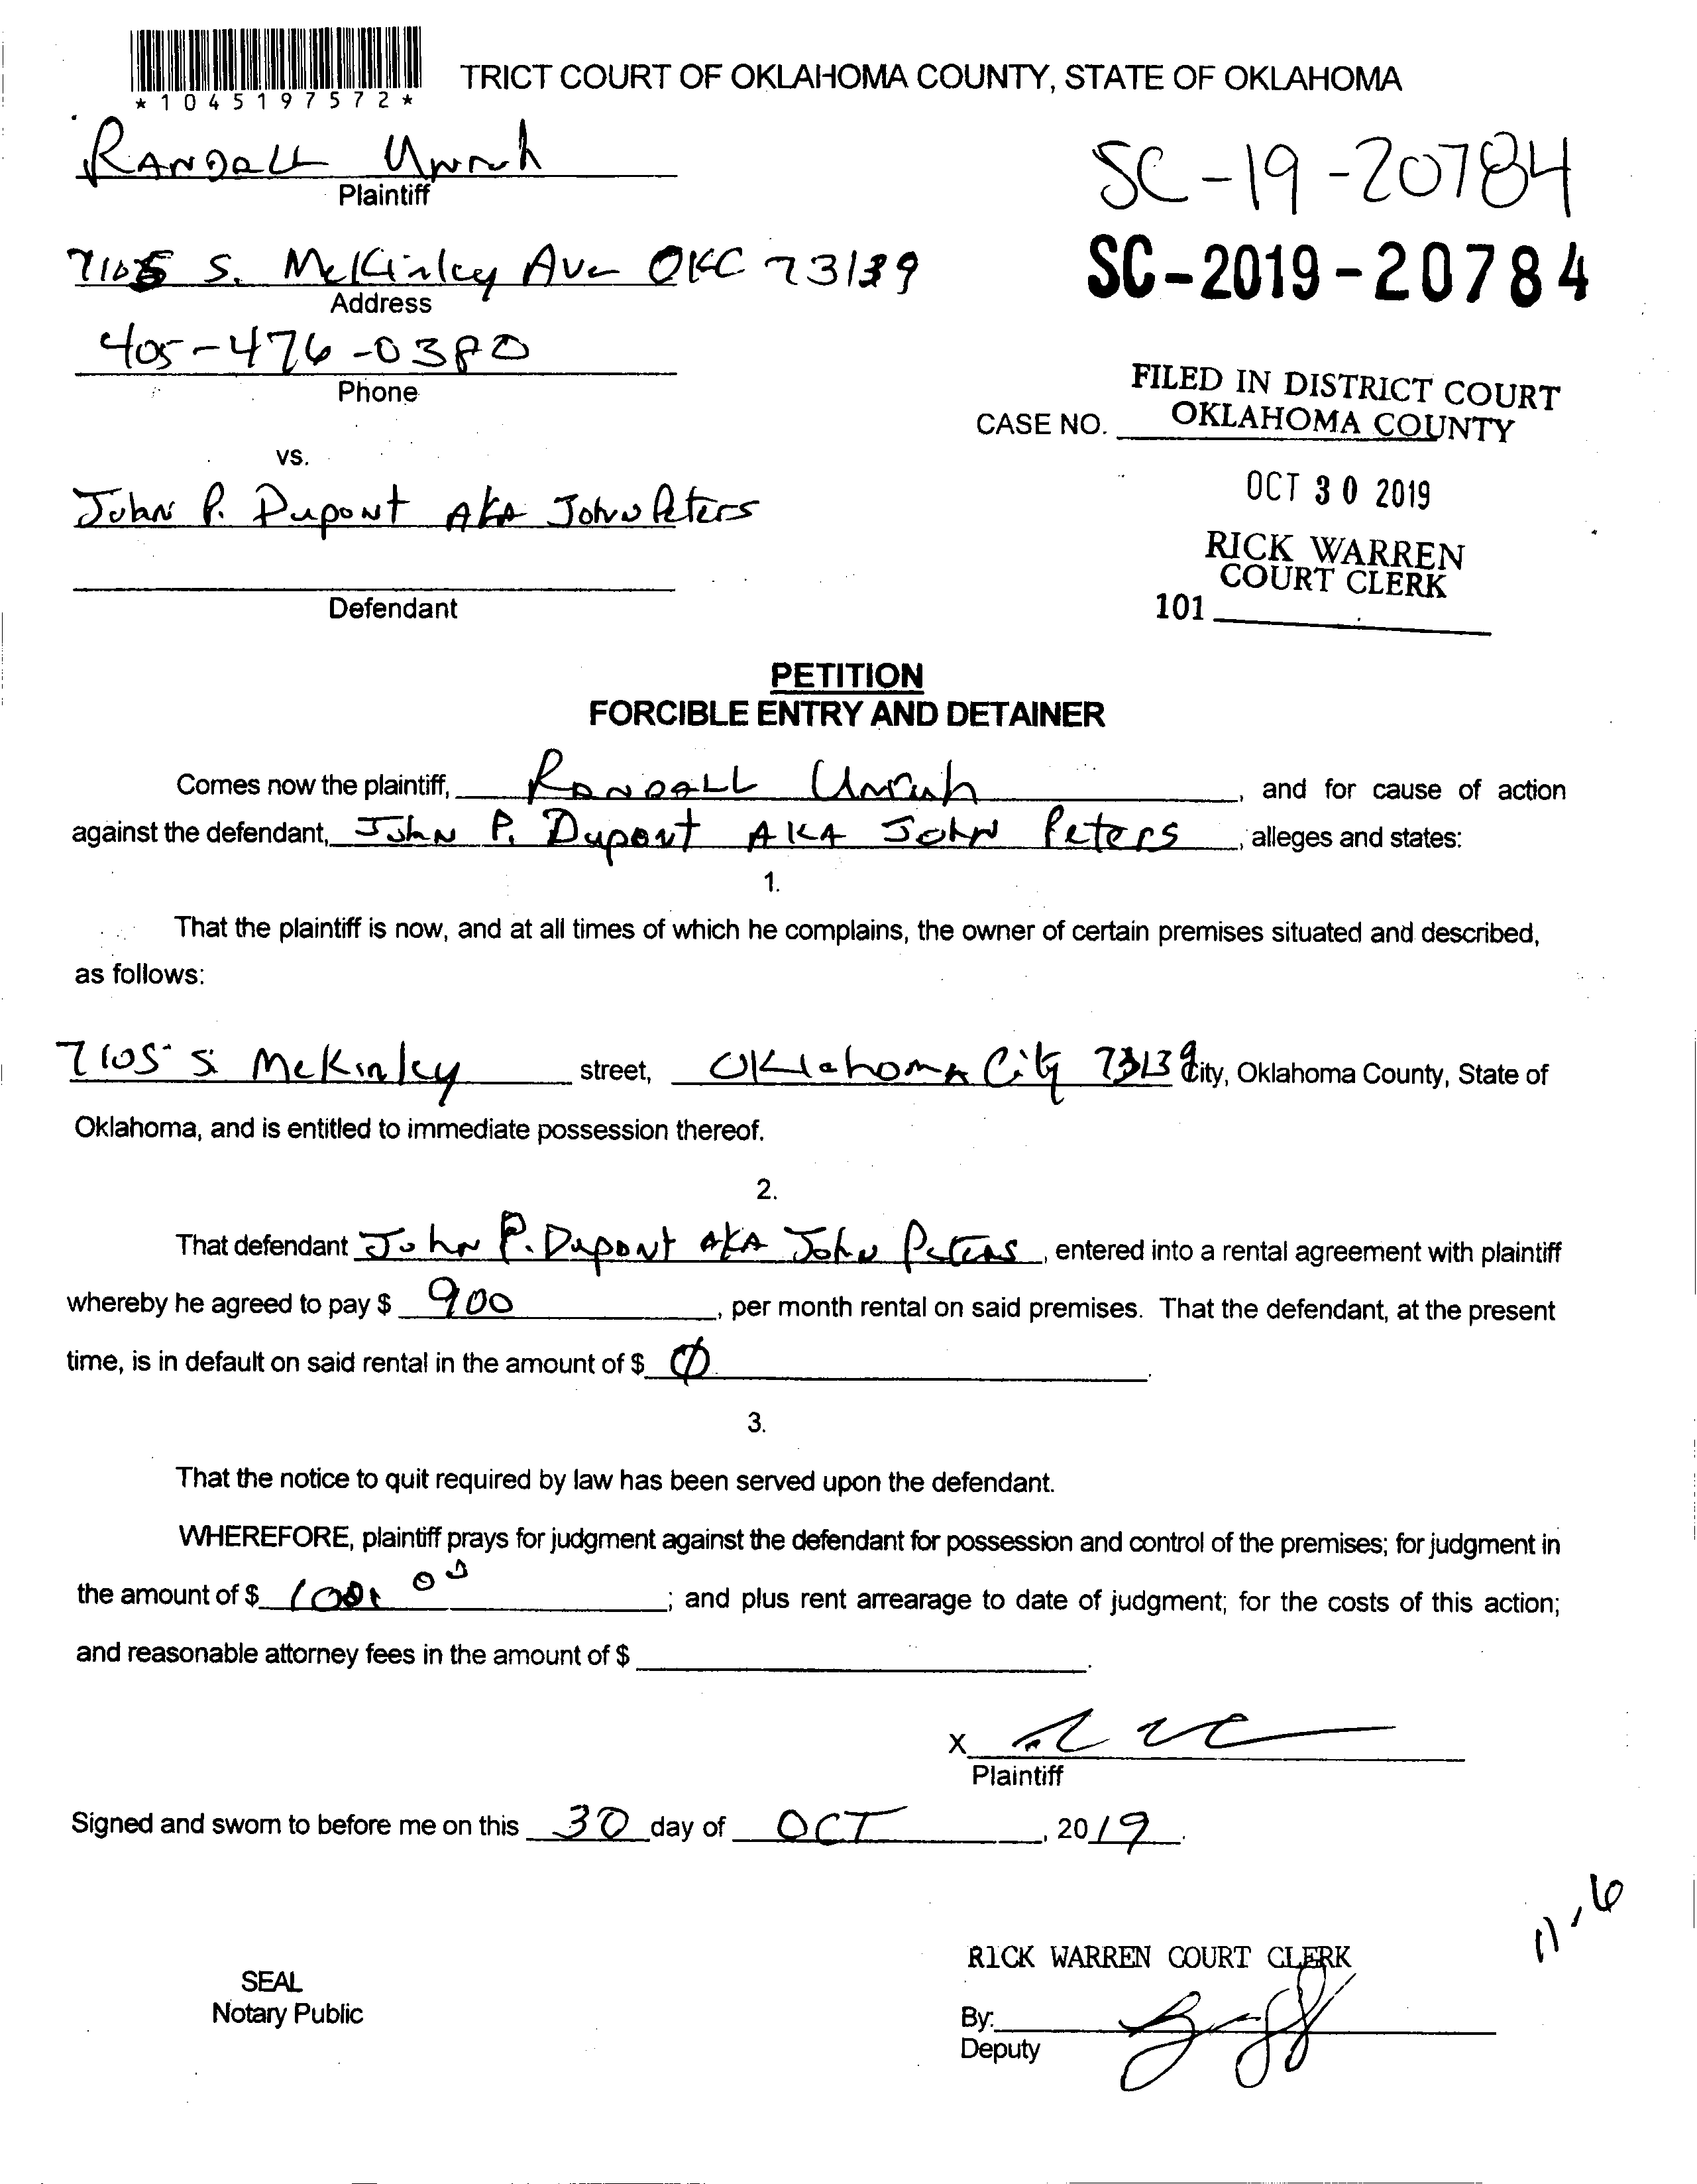 *1045197572*
TRICT COURT OF OKLAHOMA COUNTY, STATE OF OKLAHOMA
RANDALL Unruh
Plaintiff
SC-19-20784
7105 S. McKinley Ave OKC 73139
Address
SC-2019-20784
405-476-0380
Phone
FILED IN DISTRICT COURT
OKLAHOMA COUNTY
CASE NO.
vs.
OCT 30 2019
John P. Dupont AKA John Peters
RICK WARREN
COURT CLERK
Defendant
101
PETITION
FORCIBLE ENTRY AND DETAINER
Comes now the plaintiff, RANDALL Unruh, and for cause of action
against the defendant, John P. Dupont AKA John Peters, alleges and states:
1.
That the plaintiff is now, and at all times of which he complains, the owner of certain premises situated and described,
as follows:
7105 S. McKinley street, Oklahoma City 73139 City, Oklahoma County, State of
Oklahoma, and is entitled to immediate possession thereof.
2.
That defendant John P. Dupont AKA John Peters, entered into a rental agreement with plaintiff
whereby he agreed to pay $ 900, per month rental on said premises. That the defendant, at the present
time, is in default on said rental in the amount of $ 0.
3.
That the notice to quit required by law has been served upon the defendant.
WHEREFORE, plaintiff prays for judgment against the defendant for possession and control of the premises; for judgment in
the amount of $ ; and plus rent arrearage to date of judgment; for the costs of this action;
and reasonable attorney fees in the amount of $ .
X
Plaintiff
Signed and sworn to before me on this 30 day of OCT, 2019.
11-6
RICK WARREN COURT CLERK
SEAL
Notary Public
By:
Deputy